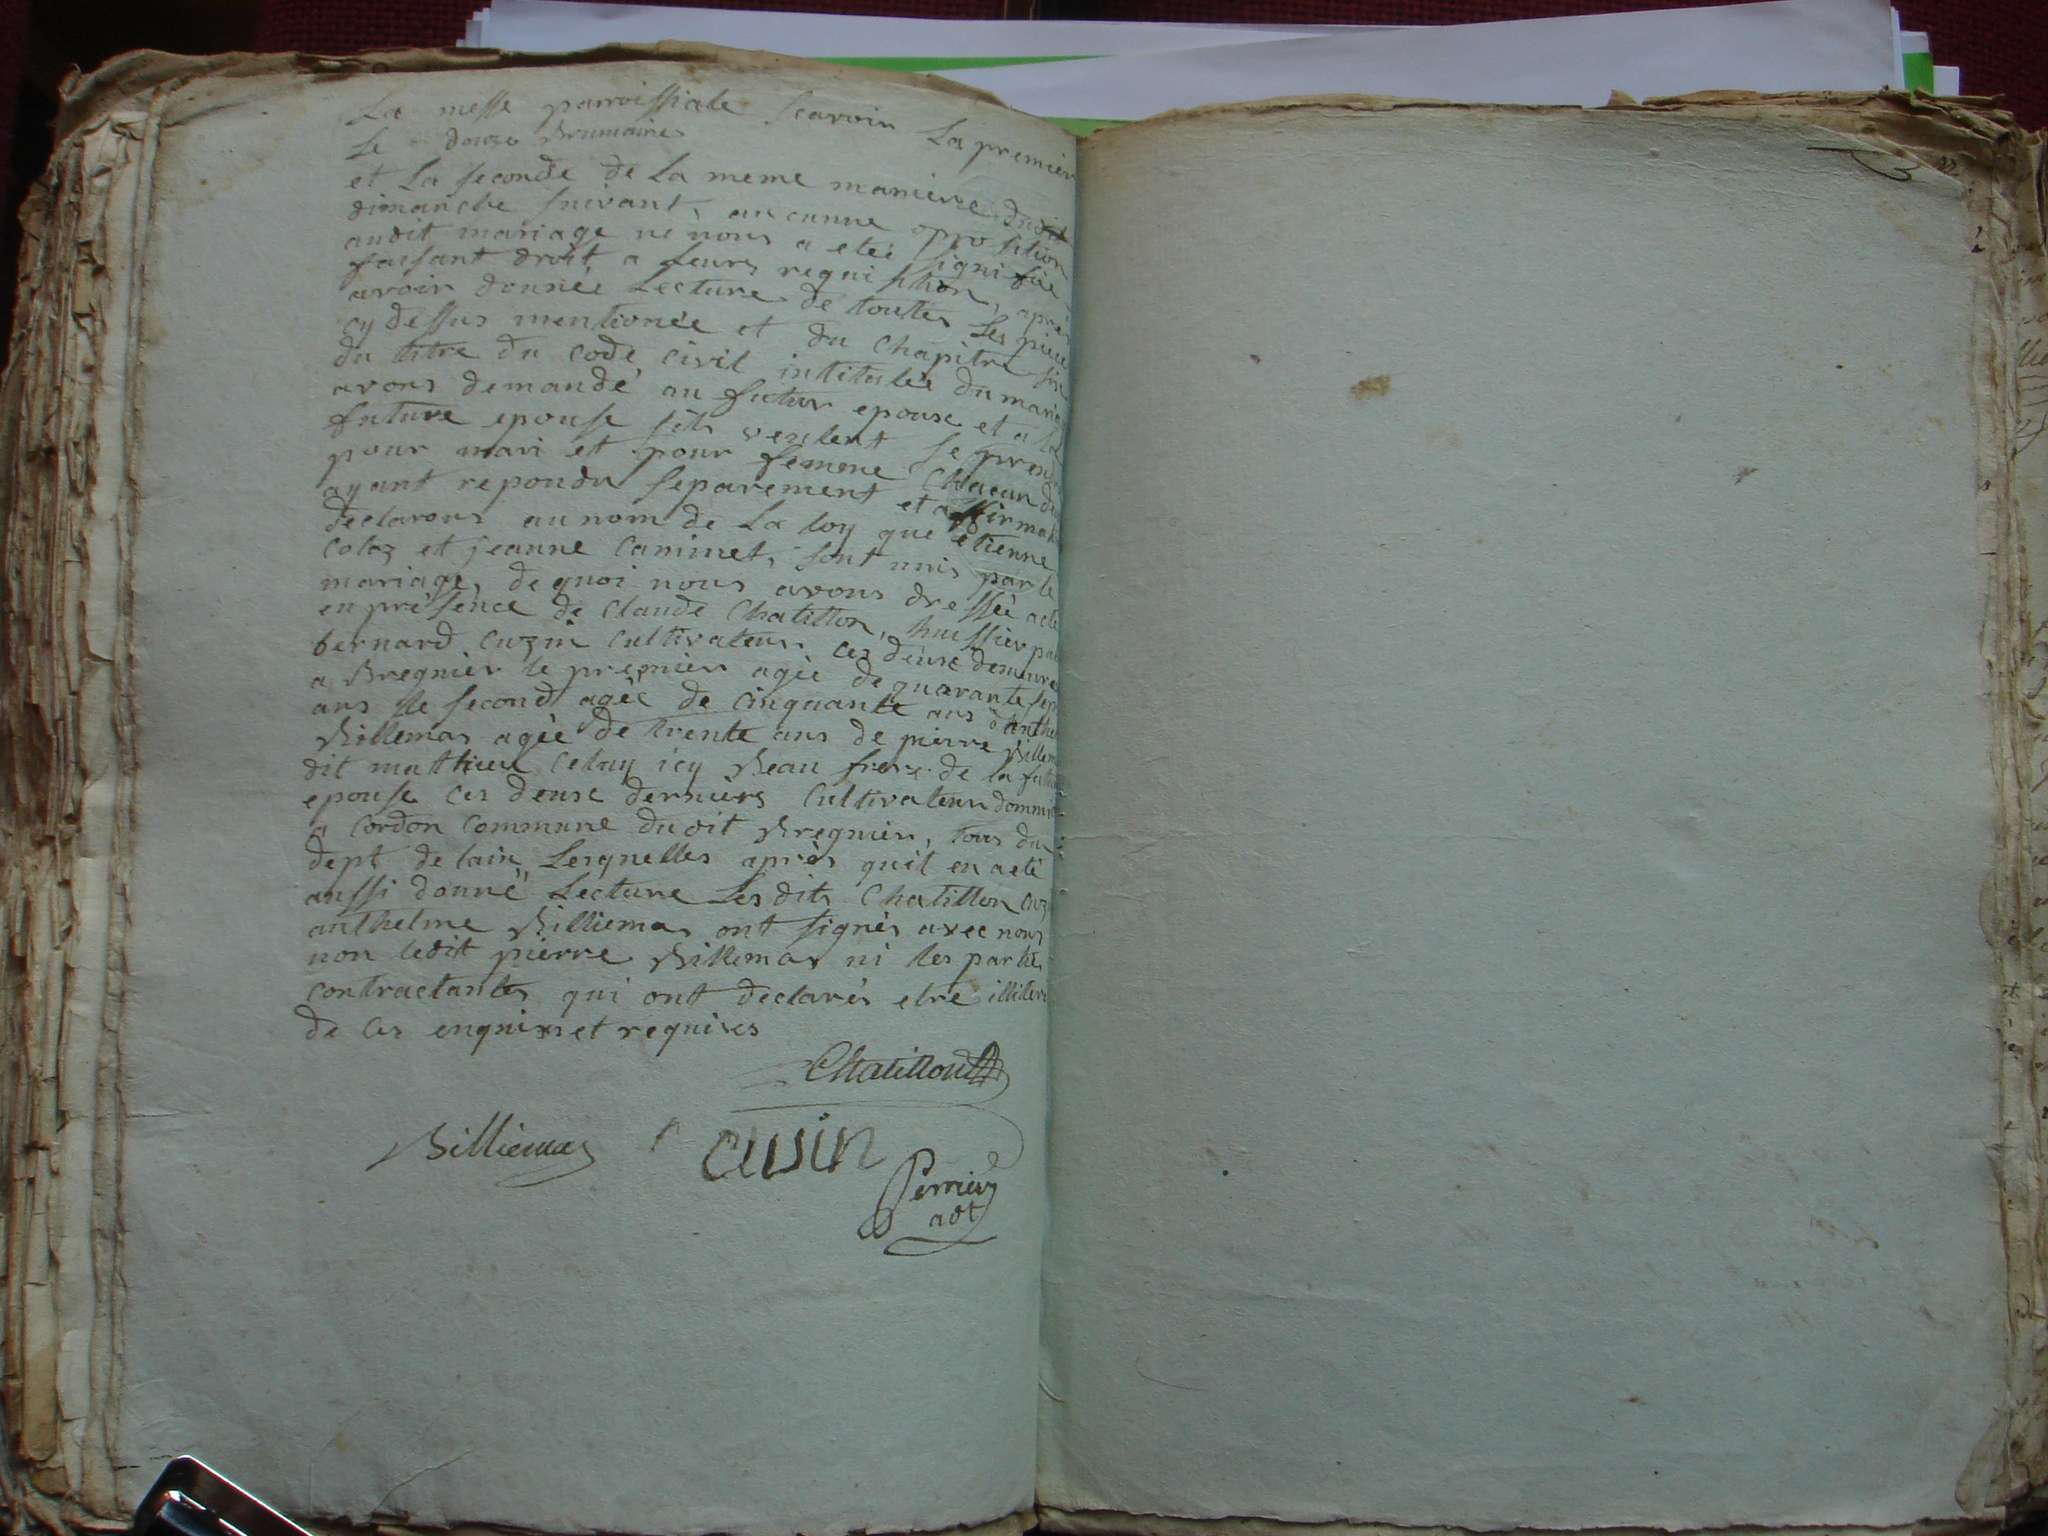 La messe parroissiale scavoir La premier
Le douze Brumaire
et La seconde de La meme maniere dudit
dimanche suivant, aucunne oposition
audit mariage ne nous a eteé signifiée
faisant droit a leurs requisition, aprés
avoir donnée Lecture de toutes Les piece
cy dessus mentionée et du Chapitre six
du titre du code civil intitulée du maria
avons demandé au futur epoux et a la
future epouse sils veulent se prendre
pour mari et pour femme Chacun deux
ayant repondu separement et affirmati
declarons au nom de La loy que etienne
Coloz et jeanne Caminet, sont unis par le
mariage, de quoi nous avons dressée acte
en présence de Claude Chatillon, huissier pa
bernard Cuzin Cultivateur ces deux demeure
a Bregnier le premier agée de quarante sept
ans le second agée de Cinquante ans d'anthe
Billemas agée de trente ans de pierre Billem
dit mathieu Celuy icy Beau frere de la futu
epouse ces deux derniers Cultivateur dommi
a Cordon Commune dudit Bregnier, tous du
dept de lain, Lesquelles aprés quil en a eté
aussi donné Lecture Les dits Chatillon Cuz
anthelme Billiemas ont signés avec nous
non ledit pierre Billemas ni les parties
contractantes qui ont declarés etre illiter
de ces enquis et requises
Chatillon
Billiemaz cusin
Perrier
adt